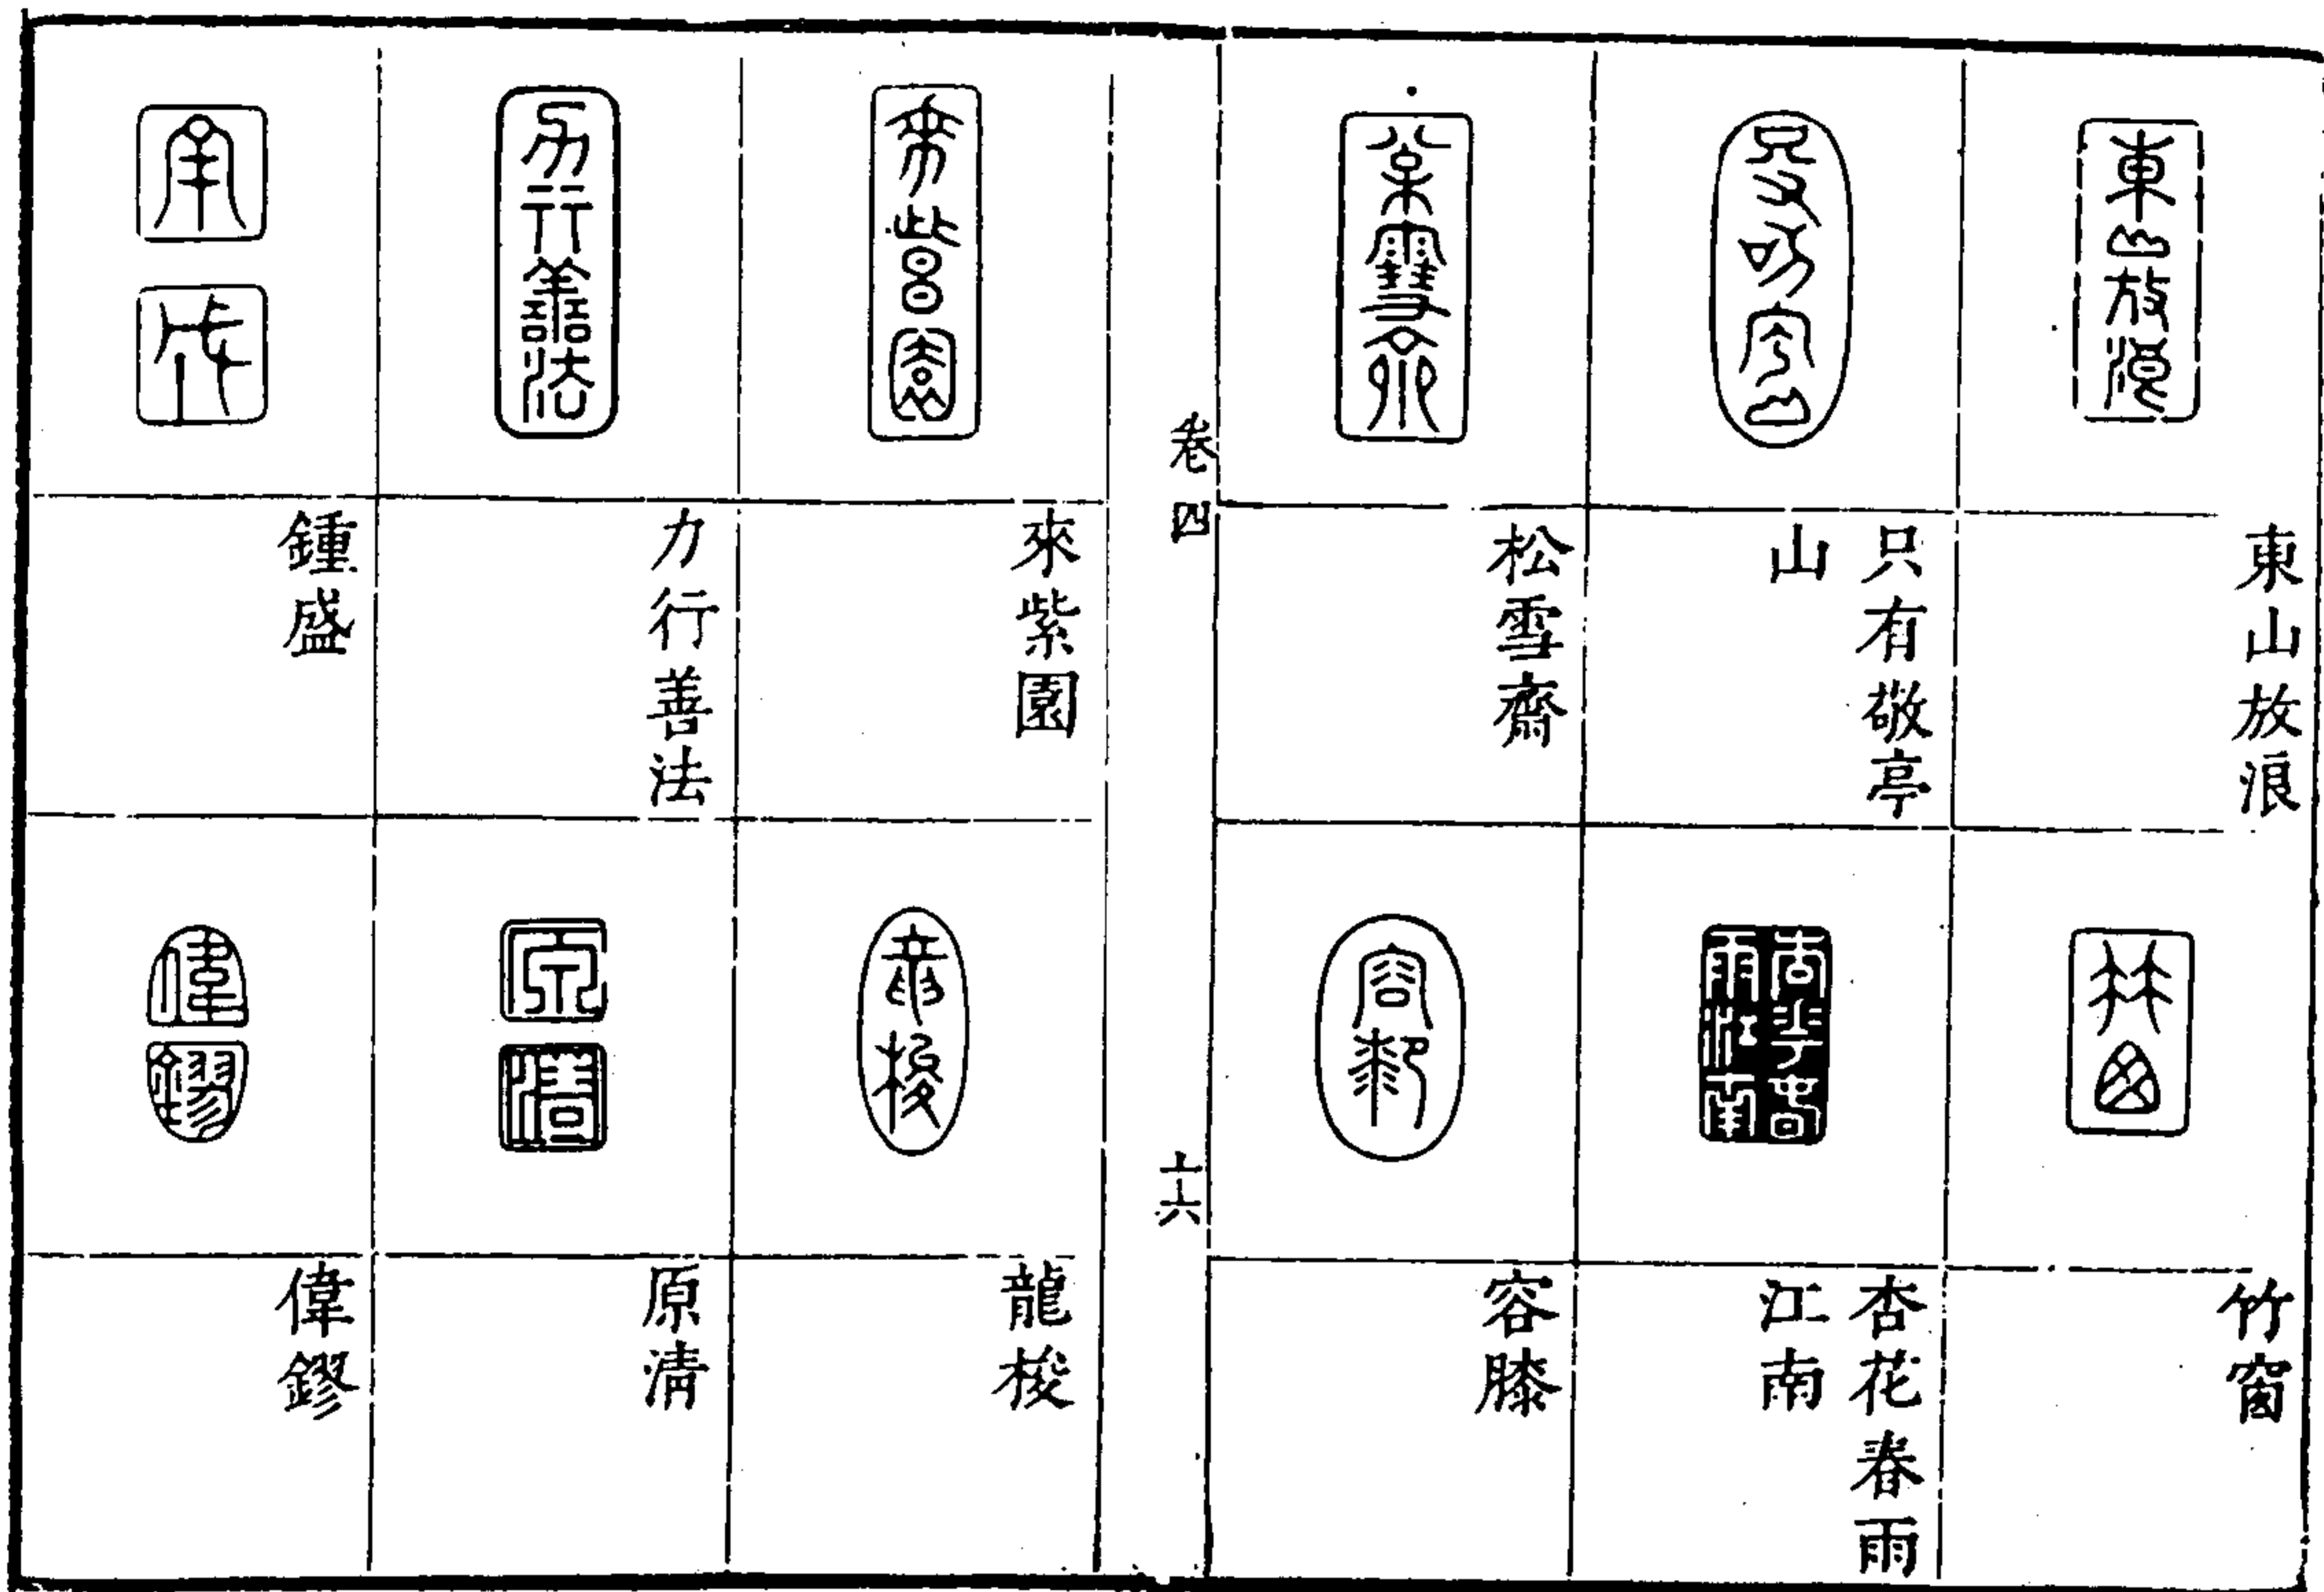 東山放浪
只有敬亭
山
松雪齋
竹窗
杏花春雨
江南
容膝
卷四
十六
來紫園
力行善法
鍾盛
龍梭
原清
偉鏐